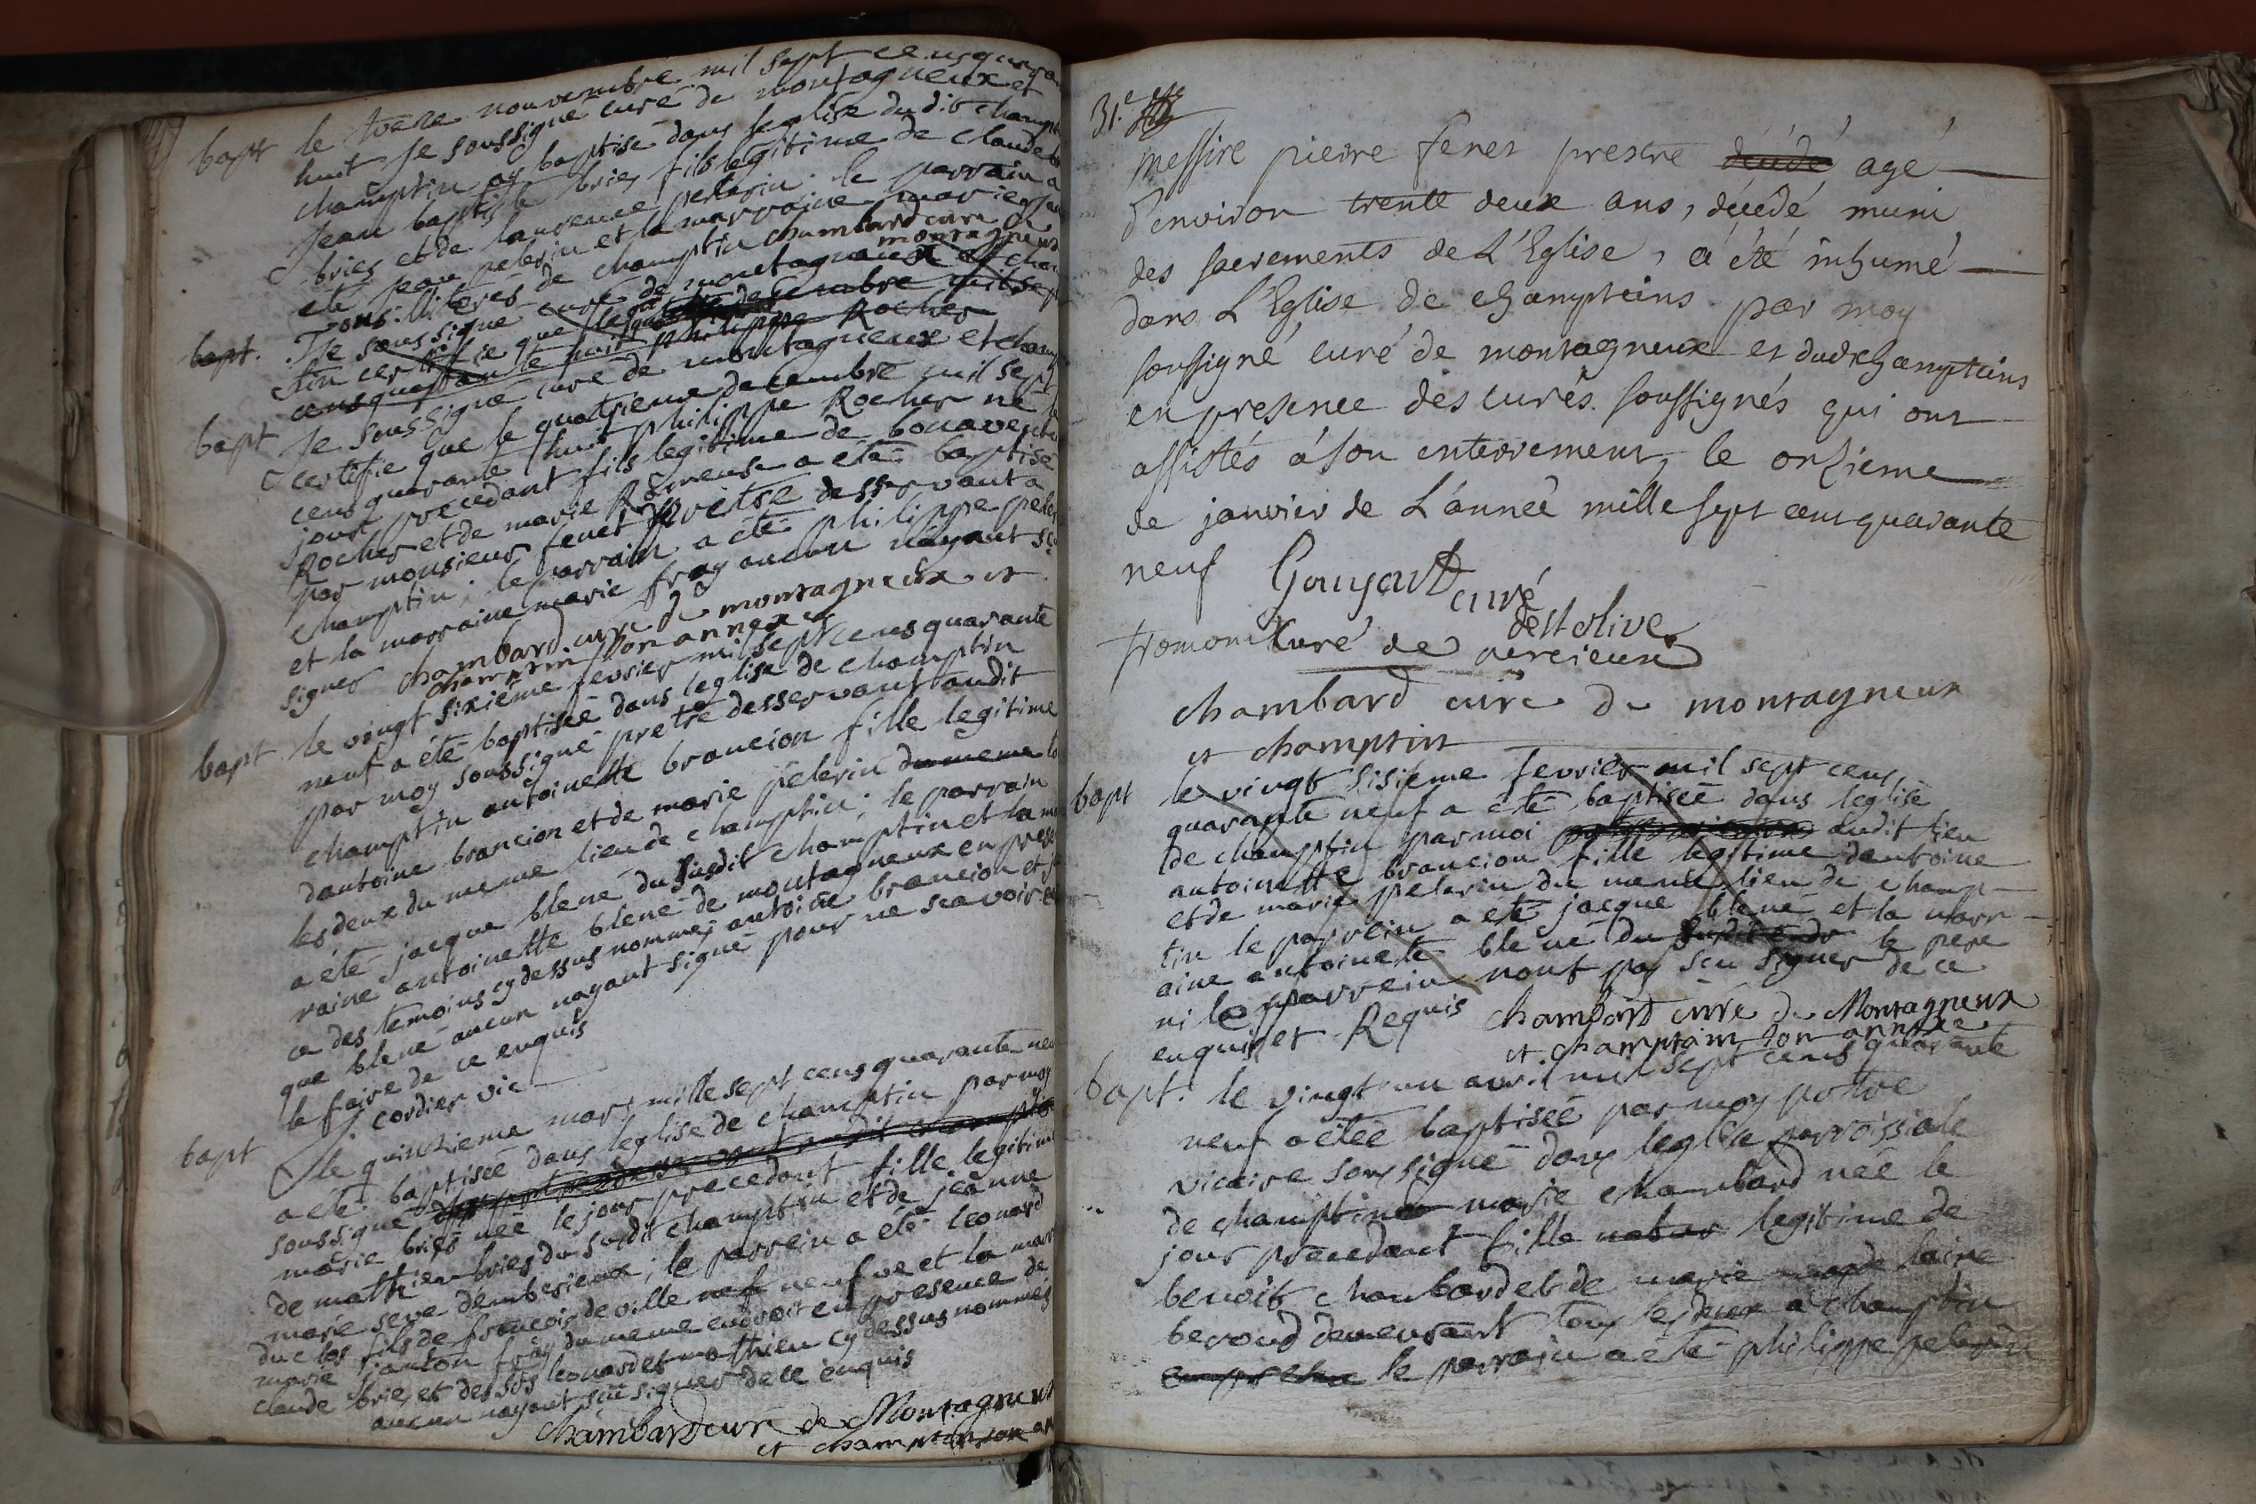 bapt le treze nouvembre mil sept cens quaran
huit je soussigné curé de montagneux et
champtin ay baptisé dans leglise du dit champt
jean baptiste bries fils legitime de claude
bries et de laurence pelerin. le parrain a
eté jean pelerin et la marraine marie
tous illiteres de champtin chambard curé de
montagneux
bapt. Je soussigné curé de montagneux et cham
tin certifie que le decembre mil sept
cens quarante huit philippe Rocher
bapt Je soussigné curé de montagneux et champ
certifie que le quatrieme decembre mil sept
cens quarante huit philippe Rocher né le
jour precedant fils legitime de bonaventu
Rocher et de marie Rameus a eté baptisé
par monsieur fenet pretre desservant a
champtin; le parrain a eté philippe peler
et la marraine marie fray aucun nayant sçu
signer chambard curé de montagneux et
champtin son annexe
bapt le vingt sixieme fevrier mil sept cens quarante
neuf a été baptisée dans leglise de champtin
par moy soussigné pretre desservant audit
champtin antoinette brancion fille legitime
dantoine brancion et de marie pelerin du meme
les deux du meme lieu de champtin; le parrain
a été jacque blené du susdit champtin et la mar
raine antoinette blené de montagneux en presen
ce des temoins cy dessus nommés antoine brancion et ja
que blené aucun nayant signé pour ne sçavoir
le faire de ce enquis
J cordier vic
bapt le quinzieme mars mille sept cens quarante neu
a eté baptisée dans leglise de champtin par moy
soussigné desservant audit champtin
marie bries née le jour precedant fille legitime
de mathieu bries du susdit champtin et de jeanne
marie seve dembesieux; le parrein a été leonard
duclos fils de francois de ville neufve et la mar
marie janton fray du meme endroit en presence de
claude bries et des srs leonard et mathieu cy dessus nommés
aucun nayant sçu signer de ce enquis
chambard curé de Montagneux
et champtin son an
31.e
messire pierre fenet prestre décédé agé
d'environ trente deux ans, décédé muni
des sacrements de L'Eglise, a été inhumé
dans L'Eglise de champteins par moy
soussigné curé de montagneux et dud champteins
en presence des curés soussignés qui ont
assistés á son enterrement, le onzieme
de janvier de L'année mille sept cent quarante
neuf Goujard curé
de st olive
tromont curé de percieux
chambard curé de montagneux
et champtin
bapt le vingt sisieme fevrier mil sept cens
quarante neuf a été baptisée dans leglise
de champtin par moi audit lieu
antoinette brancion fille legitime dantoine
et de marie pelerin du meme lieu de champ-
tin le parrein a eté jacque blené et la marr-
aine antoinete blené du susdit le pere
ni le parrein nont pas sçu signer de ce
enquis et Requis chambard curé de Montagneux
et champtain son annexe
bapt. le vingt un avril mil sept cens quarante
neuf a étée baptisée par moy pretre
vicaire soussigné dans leglise parroissiale
de champtin marie chambard née le
jour precedant fille legitime de
benoit chambard et de marie claire
beroud demeurant tous les deux a champtin
le parrain a eté philippe pelerin